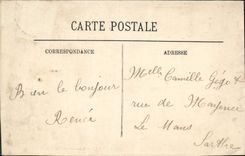 CARTE POSTALE
CORRESPONDANCE
ADRESSE
Melle Camille
Bien le bonjour
rue de Mayence
Renée
Le Mans
Sarthe